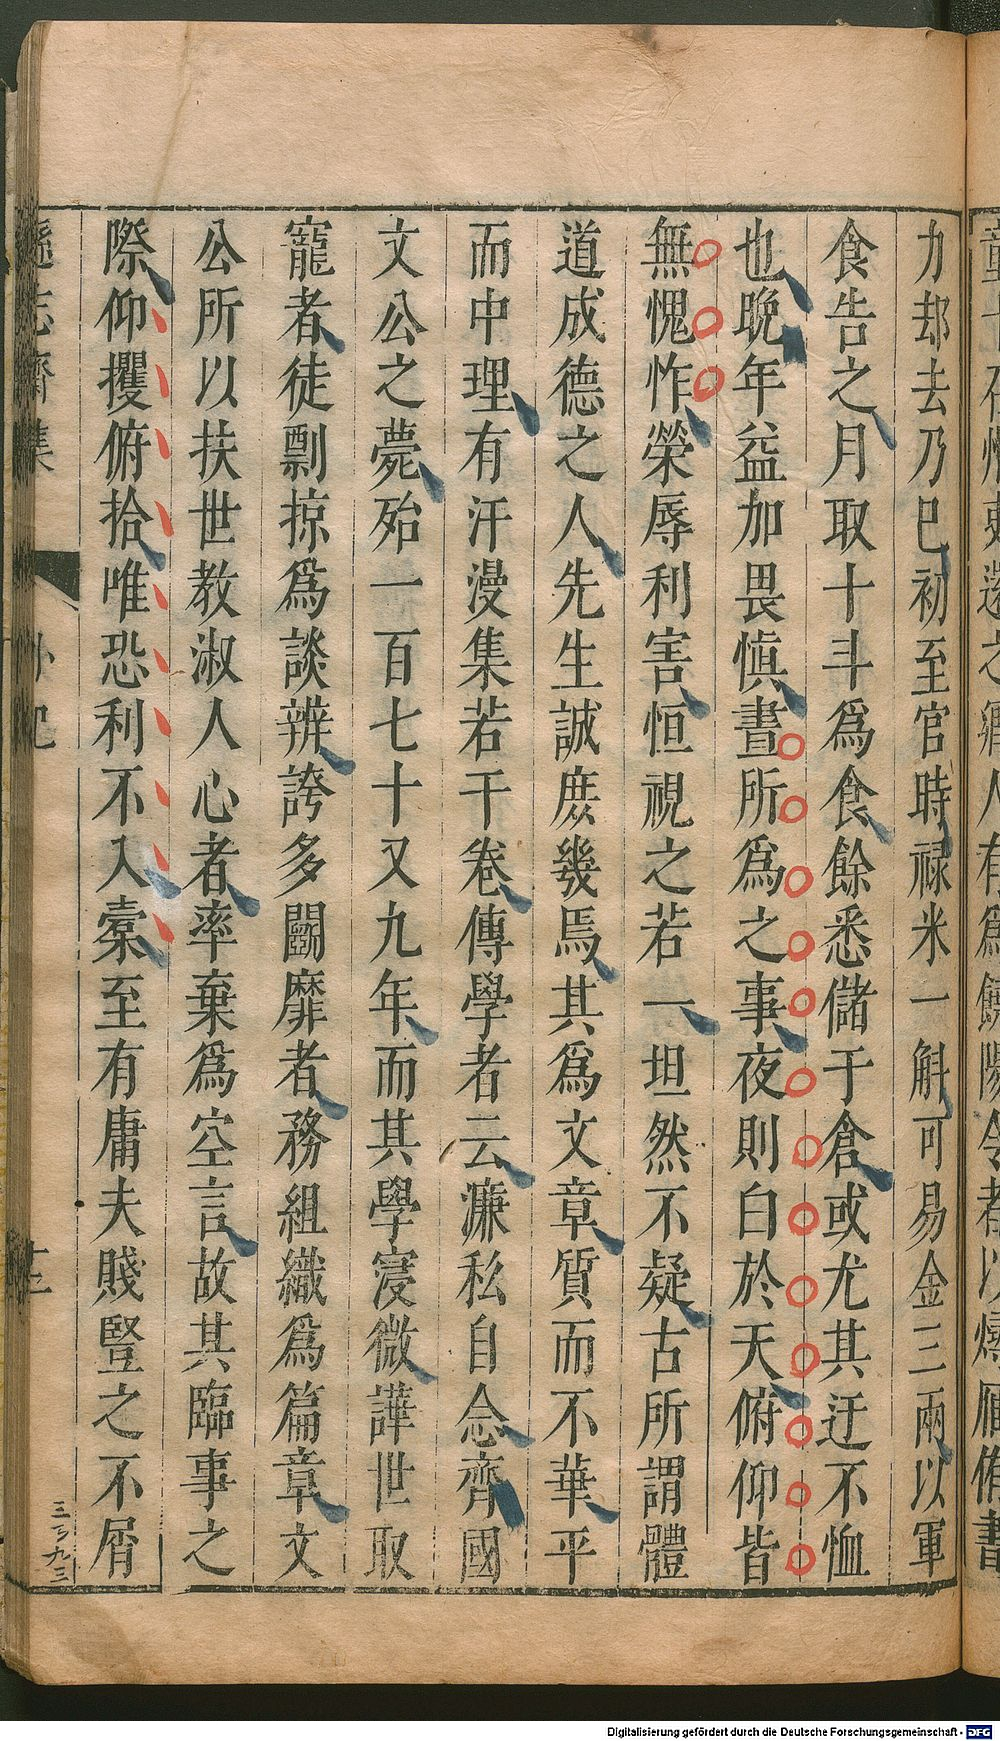 力却去乃巳初至官時祿米一斛可易金三兩以軍
食告之月取十斗爲食餘悉儲于倉或尤其迂不恤
也晚年益加畏慎晝所爲之事夜則白於天俯仰皆
無愧怍榮辱利害恒視之若一坦然不疑古所謂體
道成德之人先生誠庶幾焉其爲文章質而不華平
而中理有汗漫集若干卷傳學者云濂私自念齊國
文公之薨殆一百七十又九年而其學寖微譁世取
寵者徒剽掠爲談辨誇多鬭靡者務組織爲篇章文
公所以扶世教淑人心者率棄爲空言故其臨事之
際仰攫俯拾唯恐利不入橐至有庸夫賤豎之不屑
遜志齋集
三百九三
Digitalisierung gefördert durch die Deutsche Forschungsgemeinschaft - DFG